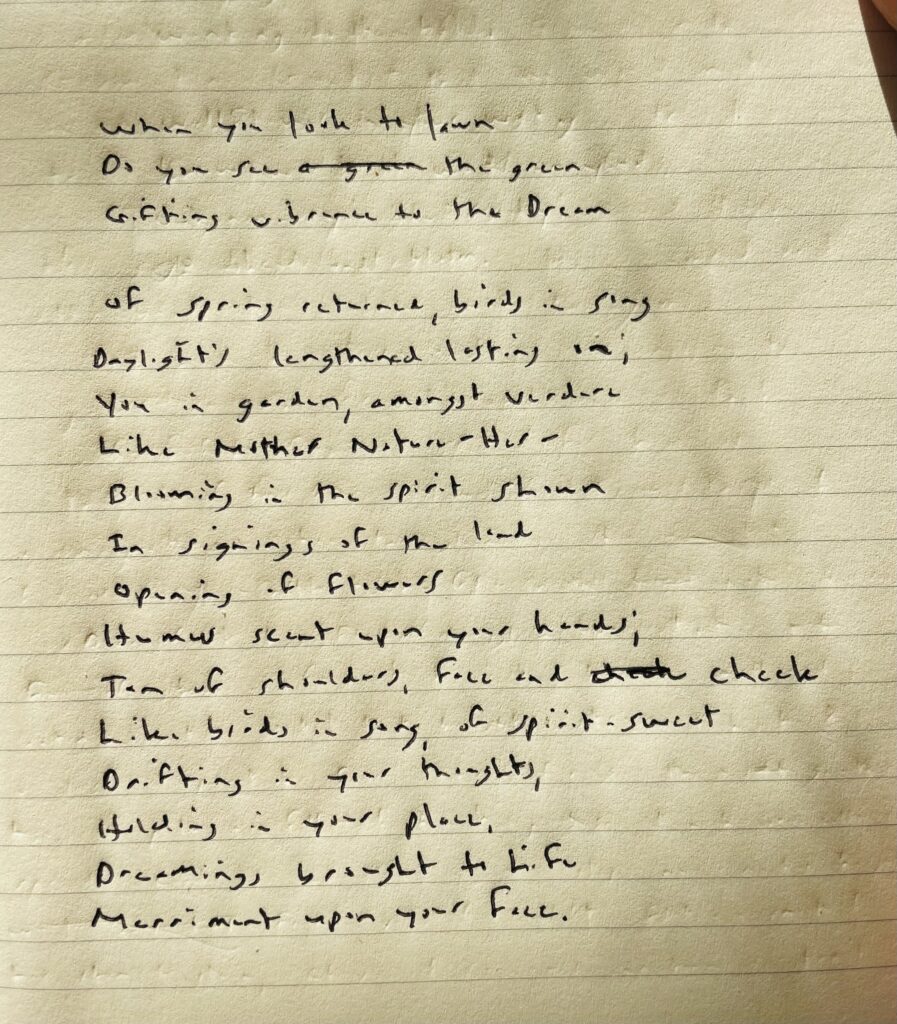 When you look to lawn
Do you see a green the green
Gifting vibrance to the Dream
Of spring returned, birds in song
Daylight's lengthened lasting on;
You in garden, amongst verdure
Like Mother Nature - Her -
Blooming in the spirit shown
In signings of the land
Opening of flowers
Humus scent upon your hands;
Tan of shoulders, face and cheek cheek
Like birds in song, of spirit-sweet
Drifting in your thoughts,
Holding in your place,
Dreamings brought to Life
Merriment upon your Face.